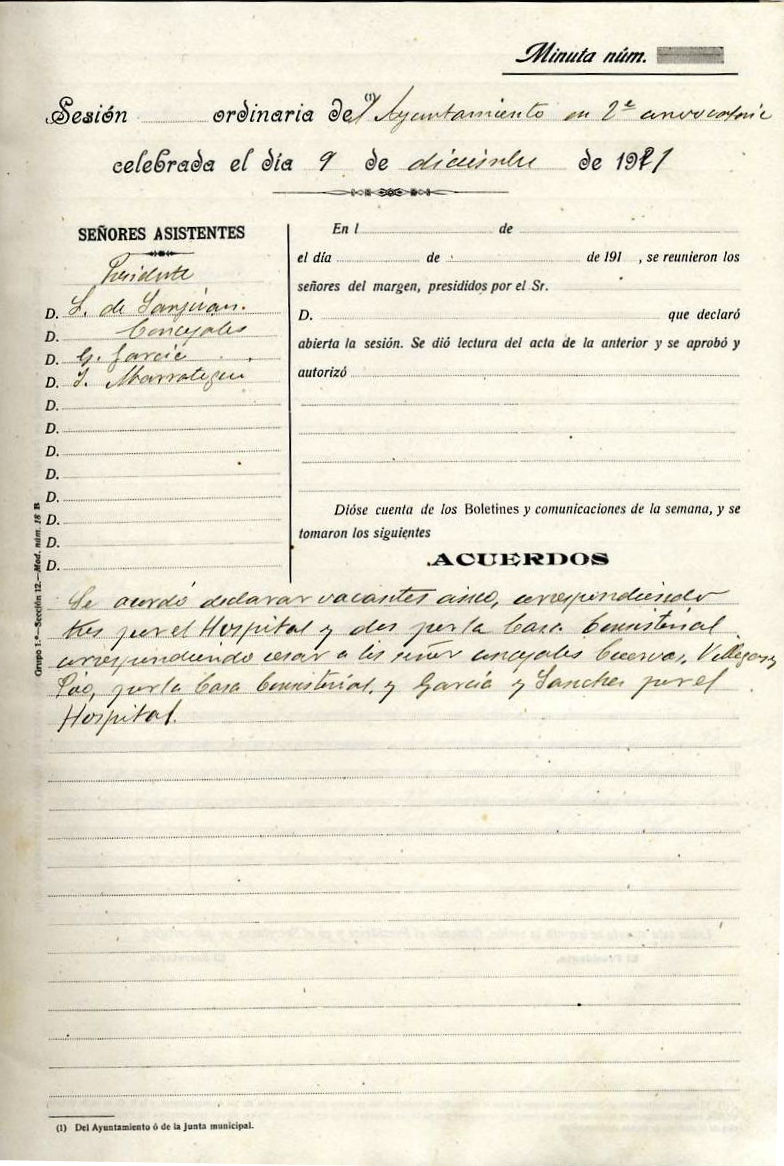 Minuta núm.
Sesión ordinaria del (1) Ayuntamiento en 2ª convocatoria
celebrada el día 9 de diciembre de 1921
SEÑORES ASISTENTES
Presidente
D. L. de Sanjuan.
D. Concejales
D. G. García
D. J.
D.
D.
D.
D.
D.
D.
D.
D.
En l de
el día de de 191 , se reunieron los
señores del margen, presididos por el Sr.
D. que declaró
abierta la sesión. Se dió lectura del acta de la anterior y se aprobó y
autorizó
Dióse cuenta de los Boletines y comunicaciones de la semana, y se
tomaron los siguientes
ACUERDOS
Se acordó declarar vacantes cinco, correspondiendo
tres por el Hospital y dos por la Casa Consistorial
correspondiendo cesar a los señor concejales Cuervas, Villegas y
por la Casa Consistorial, y García y Sanchez por el
Hospital.
Grupo 1.º—Sección 12.—Mod. núm. 18 B
(1) Del Ayuntamiento ó de la Junta municipal.